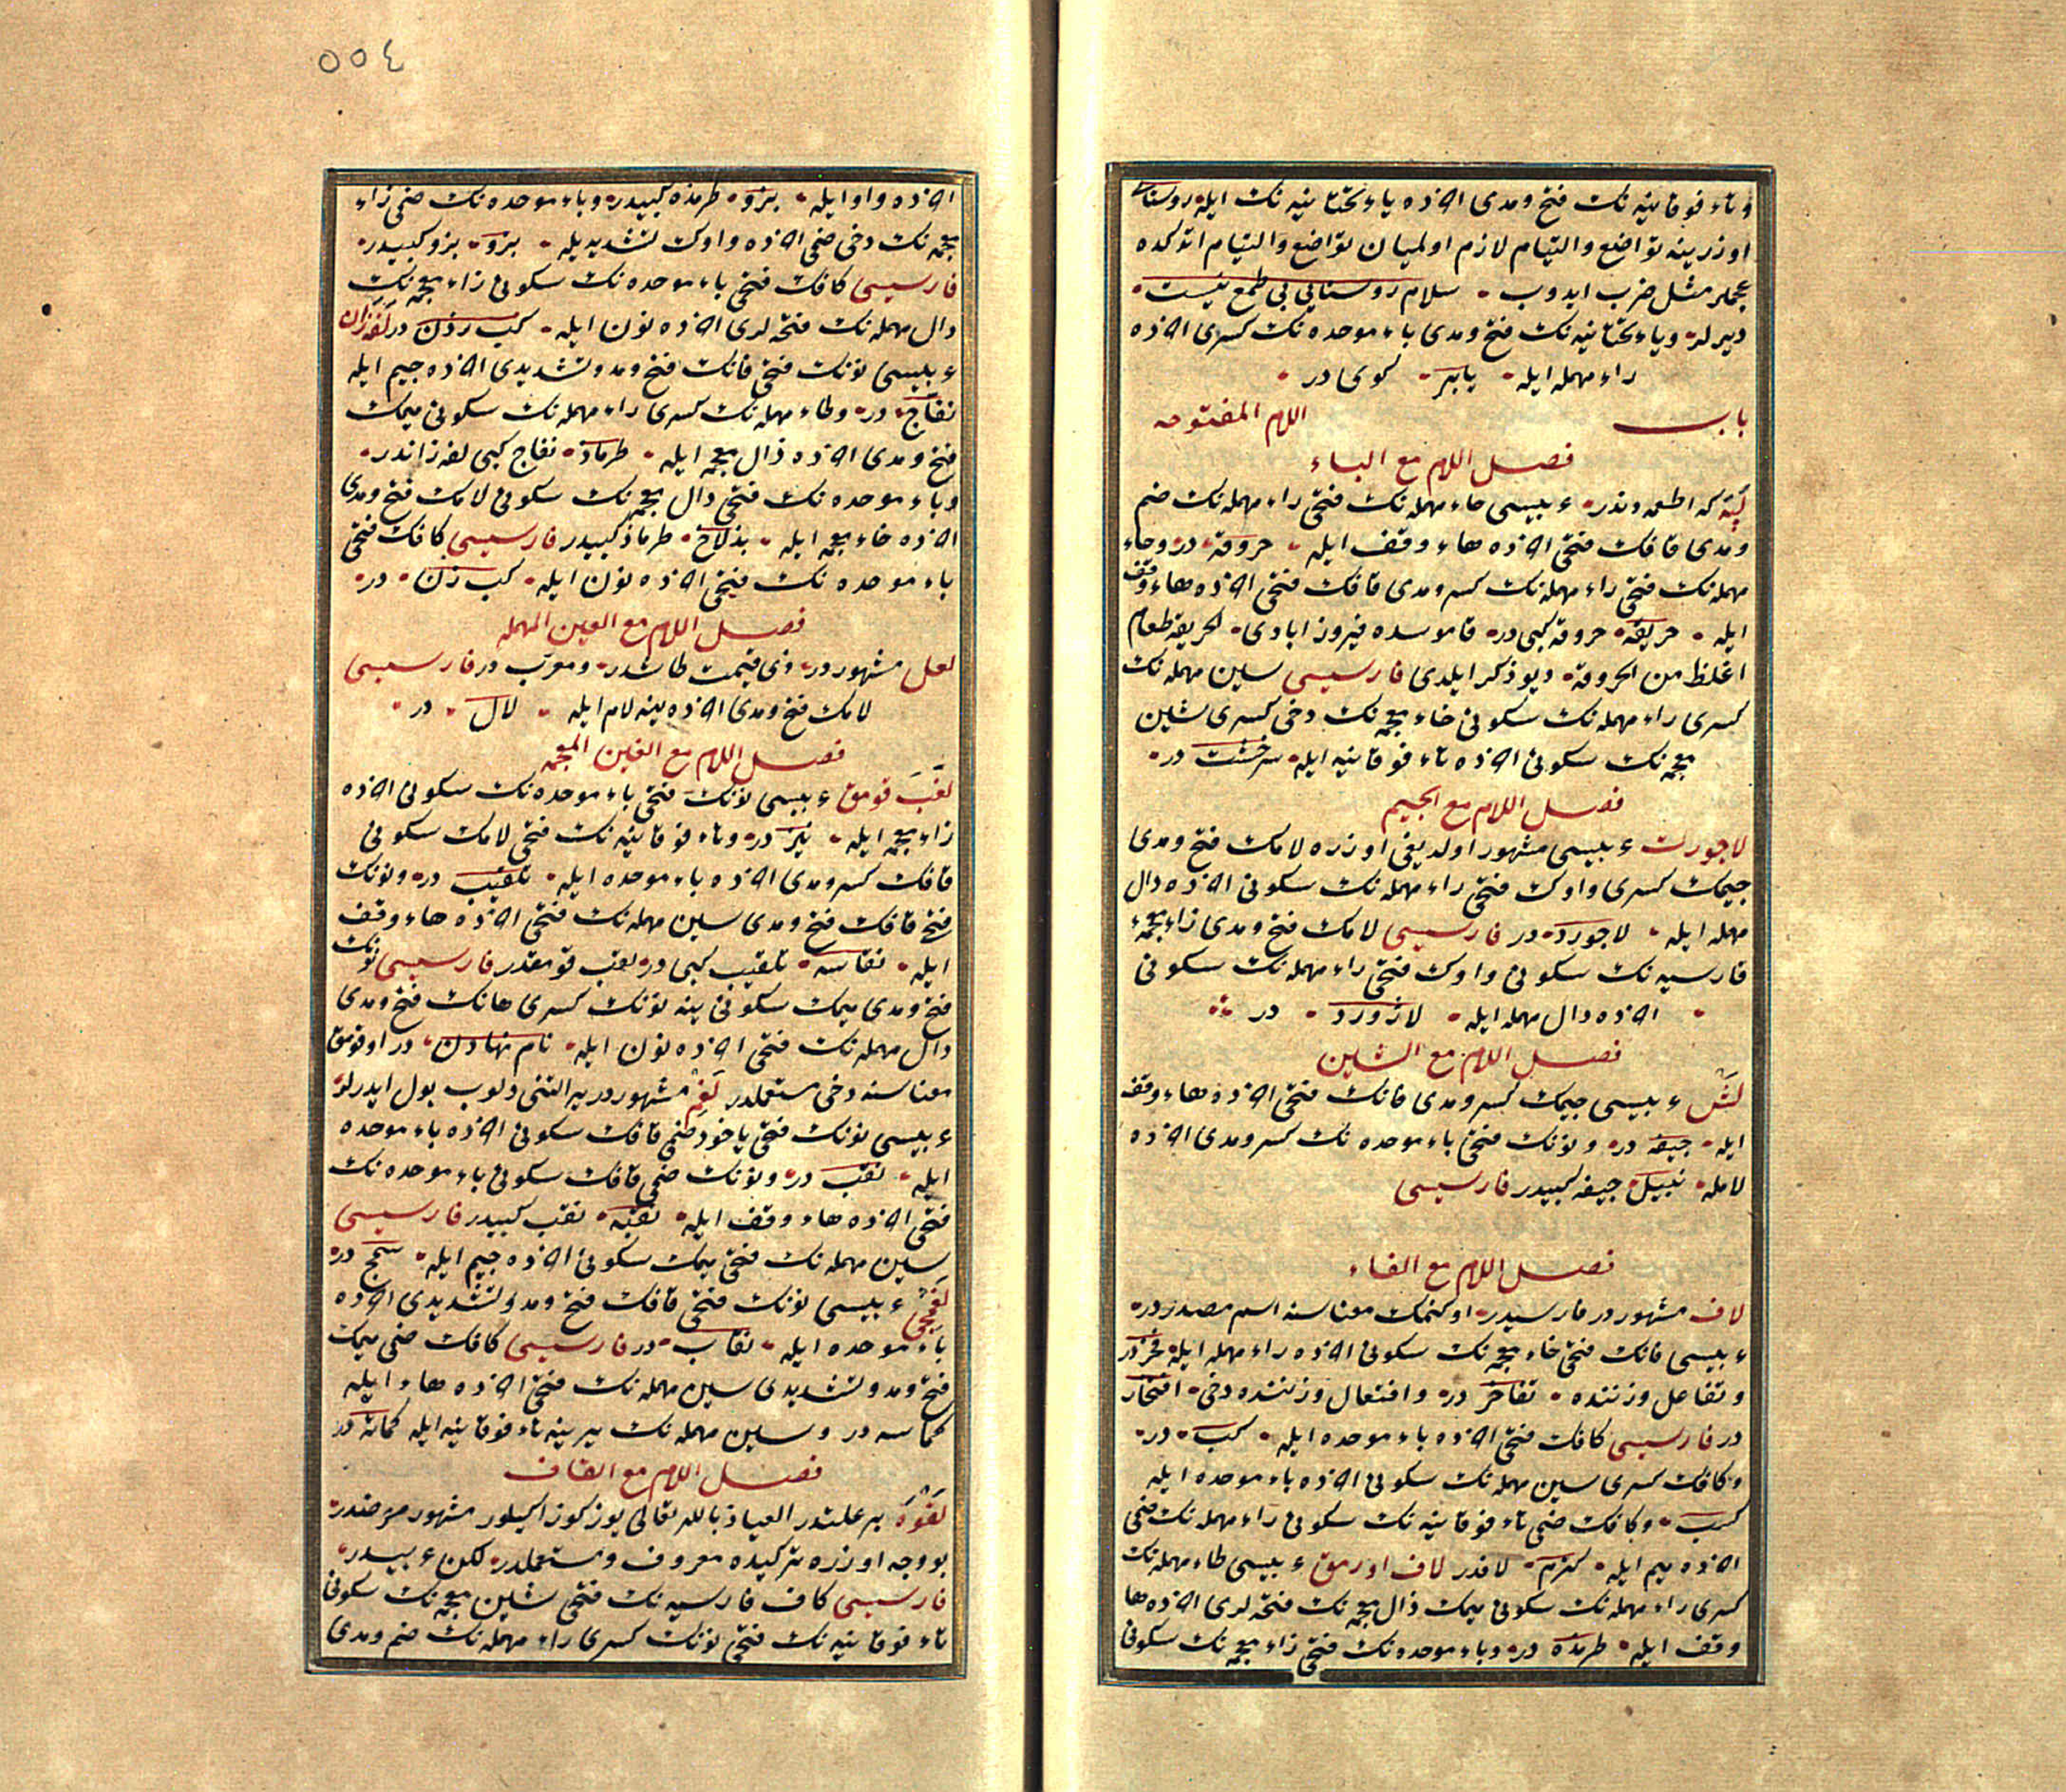 وتاء فوقانیه نك فتح ومدی اخرده یاء تحتانیه نك ایله روستایی
اوزرینه تواضع والتیام لازم اولمیان تواضع والتیام اتدکده
عجملر مثل ضرب ایدوب سلام روستایی بی طمع نیست
دیرلر ویاء تحتانیه نك فتح ومدی باء موحده نك کسری اخرده
راء مهمله ایله یابر کوی در
باب اللام المفتوحه
فصل اللام مع الباء
لپه که اطعمه دندر عربیسی حاء مهمله نك فتحی راء مهمله نك ضم
ومدی قافك فتحی اخرده هاء وقف ایله حروقة در وحاء
مهمله نك فتحی راء مهمله نك کسر ومدی قافك فتحی اخرده هاء وقف
ایله حریقة حروقة کبی در قاموسده فیروزابادی الحریقة طعام
اغلظ من الحروقة دیو ذکر ایلدی فارسیسی سین مهمله نك
کسری راء مهمله نك سکونی خاء معجمه نك دخی کسری شین
معجمه نك سکونی اخرده تاء فوقانیه ایله سرخشت در
فصل اللام مع الجیم
لاجورت عربیسی مشهور اولدیغی اوزره لامك فتح ومدی
جیمك کسری واوك فتحی راء مهمله نك سکونی اخرده دال
مهمله ایله لاجورد در فارسیسی لامك فتح ومدی زاء معجمه
فارسیه نك سکونی واوك فتحی راء مهمله نك سکونی
اخرده دال مهمله ایله لاژورد در
فصل اللام مع الشین
لش عربیسی جیمك کسر ومدی فانك فتحی اخرده هاء وقف
ایله جیفه در ونونك فتحی باء موحده نك کسر ومدی اخرده
لامله نبیل جیفه کبیدر فارسیسی
فصل اللام مع الفاء
لاف مشهور در فارسیدر اوکنمك معناسنه اسم مصدر در
عربیسی فانك فتحی خاء معجمه نك سکونی اخرده راء مهمله ایله فخر در
وتفاعل وزننده تفاخر در وافتعال وزننده دخی افتخار
در فارسیسی کافك فتحی اخرده باء موحده ایله کب در
وکافك کسری سین مهمله نك سکونی اخرده باء موحده ایله
کسب وکافك ضمی تاء فوقانیه نك سکونی راء مهمله نك ضمی
اخرده میم ایله کترم لافدر لاف اورمق عربیسی طاء مهمله نك
کسری راء مهمله نك سکونی میمك ذال معجمه نك فتحه لری اخرده ها
وقف ایله طرمذه در وباء موحده نك فتحی زاء معجمه نك سکونی
٥٥٤
اخرده واو ایله بزو طرمذه کبیدر وباء موحده نك ضمی زاء
معجمه نك دخی ضمی اخرده واوك تشدیدیله بزو بزو کبیدر
فارسیسی کافك فتحی باء موحده نك سکونی زاء معجمه نك
دال مهمله نك فتحه لری اخرده نون ایله کب زدن در لفزان
عربیسی نونك فتحی فانك فتح ومد وتشدیدی اخرده جیم ایله
نفاج در وطاء مهمله نك کسری راء مهمله نك سکونی میمك
فتح ومدی اخرده ذال معجمه ایله طرماذ نفاج کبی لفزاندر
وباء موحده نك فتحی ذال معجمه نك سکونی لامك فتح ومدی
اخرده خاء معجمه ایله بذلاخ طرماذ کبیدر فارسیسی کافك فتحی
باء موحده نك فتحی اخرده نون ایله کب زن در
فصل اللام مع العین المهمله
لعل مشهور در ذی قیمت طاشدر ومعرب در فارسیسی
لامك فتح ومدی اخرده ینه لام ایله لال در
فصل اللام مع الغین المعجمه
لغب قومق عربیسی نونك فتحی باء موحده نك سکونی اخرده
زاء معجمه ایله نبز در وتاء فوقانیه نك فتحی لامك سکونی
قافك کسر ومدی اخرده باء موحده ایله تلقیب در ونونك
فتحی قافك فتح ومدی سین مهمله نك فتحی اخرده هاء وقف
ایله نقاسه تلقیب کبی در لقب قومقدر فارسیسی نونك
فتح ومدی میمك سکونی ینه نونك کسری هانك فتح ومدی
دال مهمله نك فتحی اخرده نون ایله نام نهادن در اوقومق
معناسنه دخی مستعملدر لغم مشهور در یر التنی دلوب یول ایدرلر
عربیسی نونك فتحی یاخود ضمی قافك سکونی اخرده باء موحده
ایله نقب در ونونك ضمی قافك سکونی باء موحده نك
فتحی اخرده هاء وقف ایله نقبه نقب کبیدر فارسیسی
سین مهمله نك فتحی میمك سکونی اخرده جیم ایله سمج در
لغمجی عربیسی نونك فتحی قافك فتح ومد وتشدیدی اخرده
باء موحده ایله نقاب در فارسیسی کافك ضمی میمك
فتح ومد وتشدیدی سین مهمله نك فتحی اخرده هاء ایله
کماسه در وسین مهمله نك یرینه تاء فوقانیه ایله کماته در
فصل اللام مع القاف
لقوه بر علتدر العیاذ بالله تعالی یوز کوز اکیلور مشهور مرضدر
بو وجه اوزره ترکیده معروف ومستعملدر لکن عربیدر
فارسیسی کاف فارسیه نك فتحی شین معجمه نك سکونی
تاء فوقانیه نك فتحی نونك کسری راء مهمله نك ضم ومدی